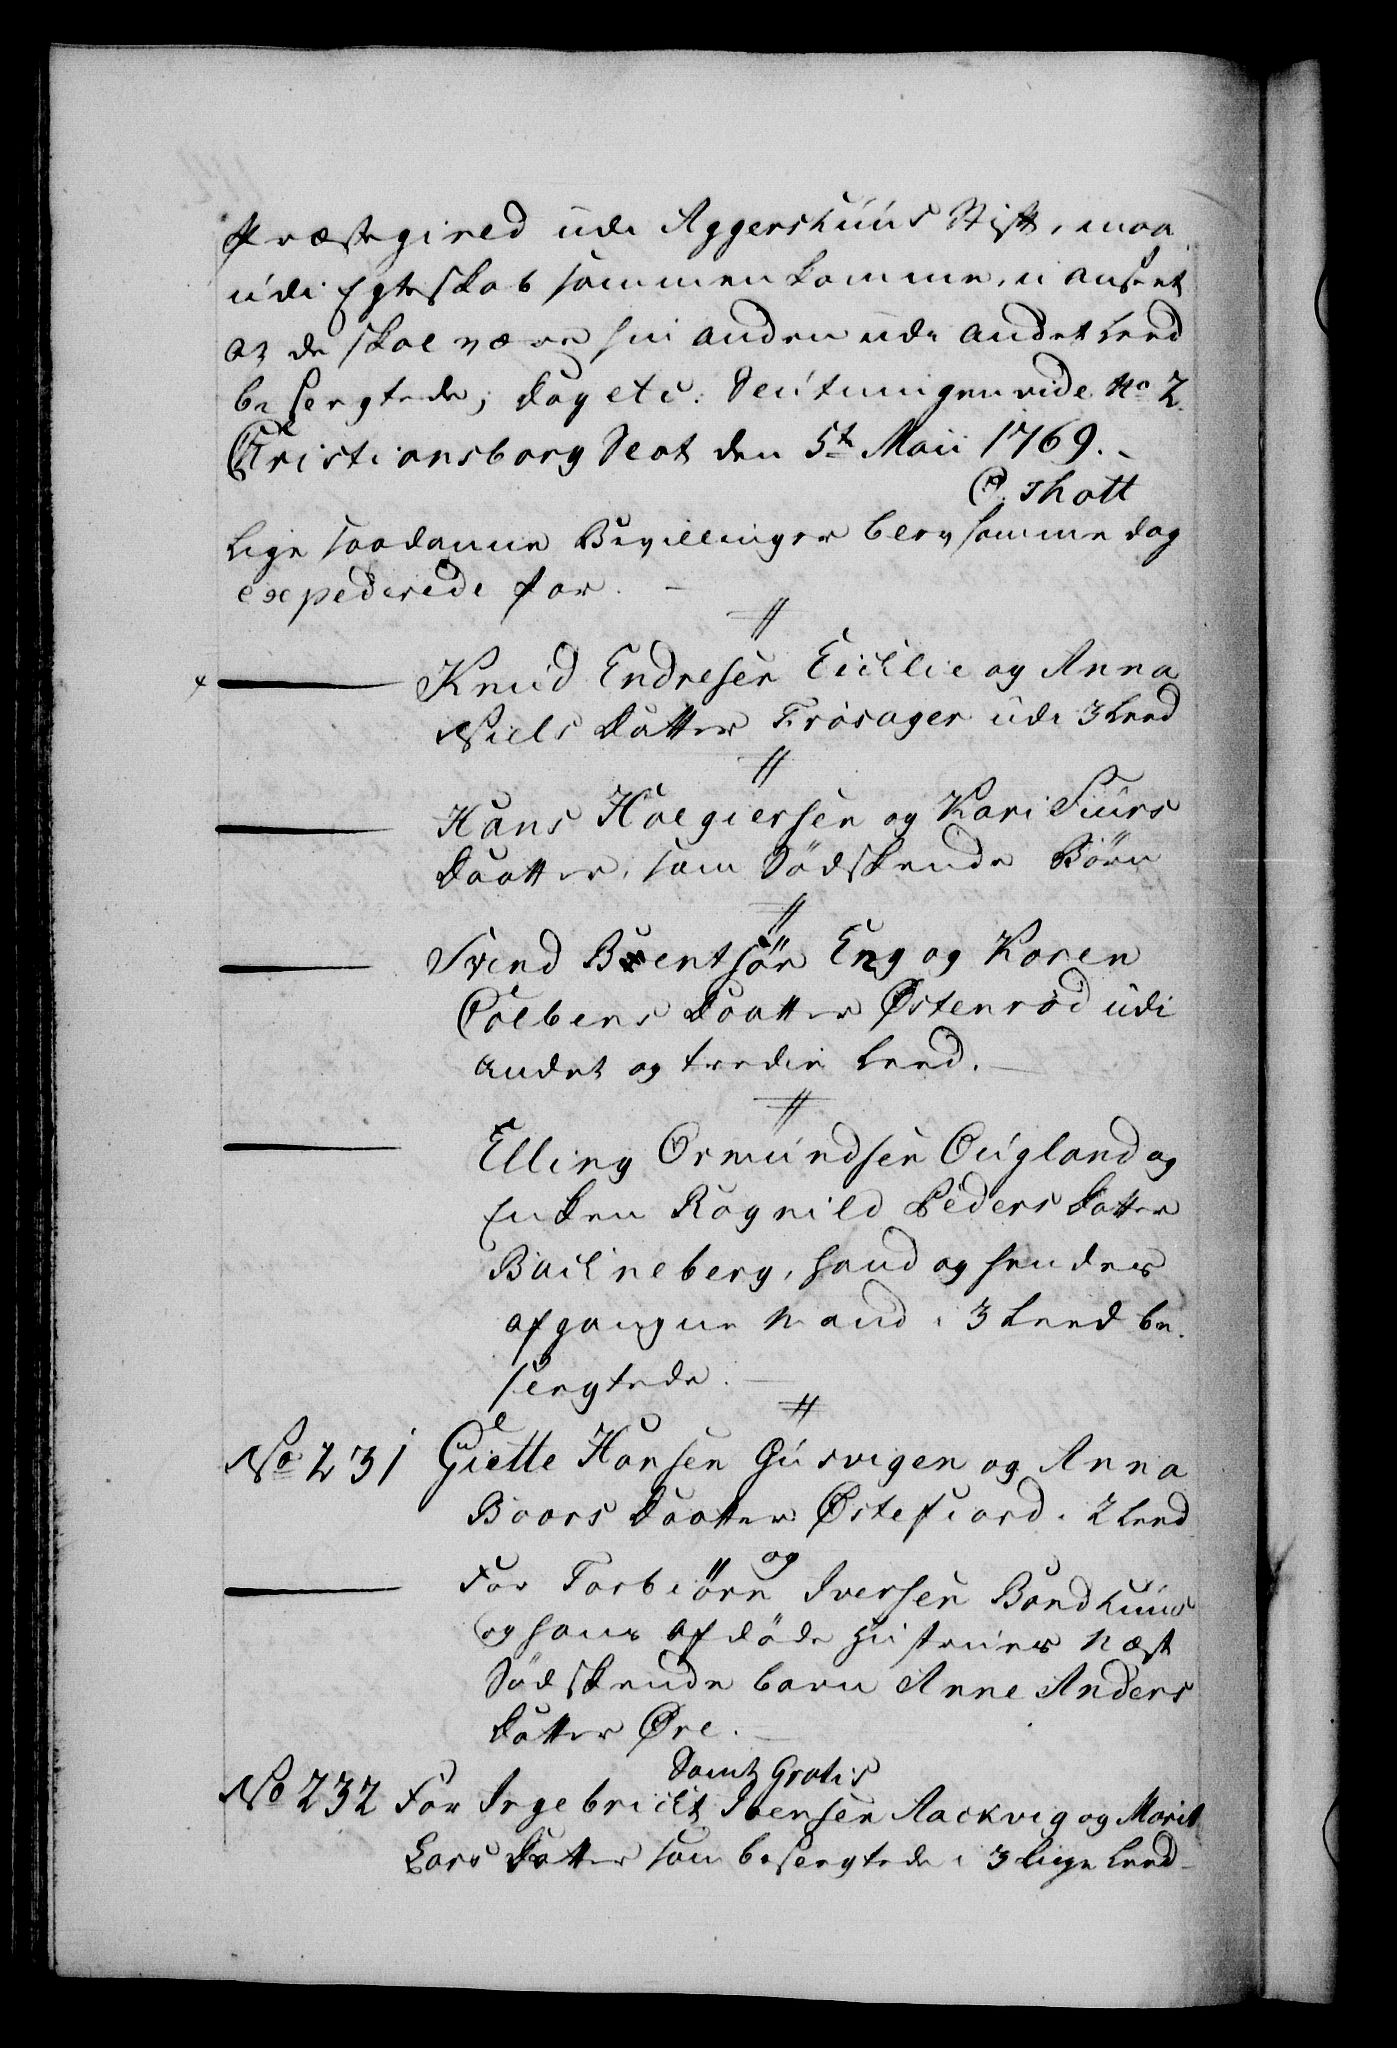 Præstegiæld udi Aggershuus Stift, maa
udi Egteskab sammenkomme, u anseet
at de skal være hin anden udi andet Leed
beslengtede; dog etc. Slutningen vide No 2.
Christiansborg Slot den 5te Maii 1769.
O. Thott
Lige saadanne Bevillinger blev samme dag
expederede for.
//
Knud Endresen Eichlie og Anna
Niels Datter Frøsager udi 3 Leed
//
Hans Holgiersen og Kari Siurs
Daatter, som Södskende Börn
//
Svend Bentsön Eng og Karen
Colbens Daatter Østenrød udi
andet og tredie Leed.
//
Elling Ormundsen Ougland og
Enken Ragnild Peders Datter
Bachneberg, hand og hendes
afgangne Mand i 3 Leed be-
slengtede.
//
No 231 Giette Hansen Gusvigen og Anna
Baars Daatter Østefiord i 2 Leed
og
For Torbiörn Iversen Bondhuus
og hans afdöde Hustrues Næst
Södskende barn Anne Anders
Datter Øre.
Samt Gratis
No 232 For Ingebricht Iversen Aackvig og Marit
Lars Datter som beslengtede i 3 liige Leed